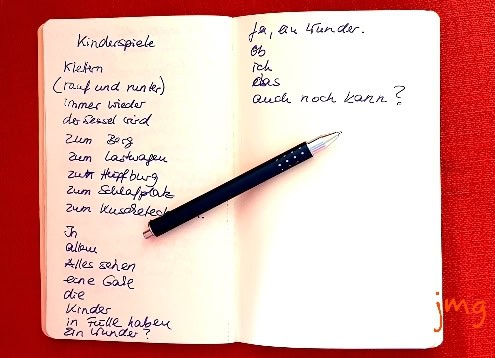 Kinderspiele
Klettern
(rauf und runter)
immer wieder
der Sessel wird
zum Berg
zum Lastwagen
zum Hüpfburg
zum Schlafplatz
zum
In
allem
Alles sehen
eine Gabe
die
Kinder
in Fülle haben
Ein Wunder?
Ja, ein Wunder.
Ob
ich
das
auch noch kann?
jmg